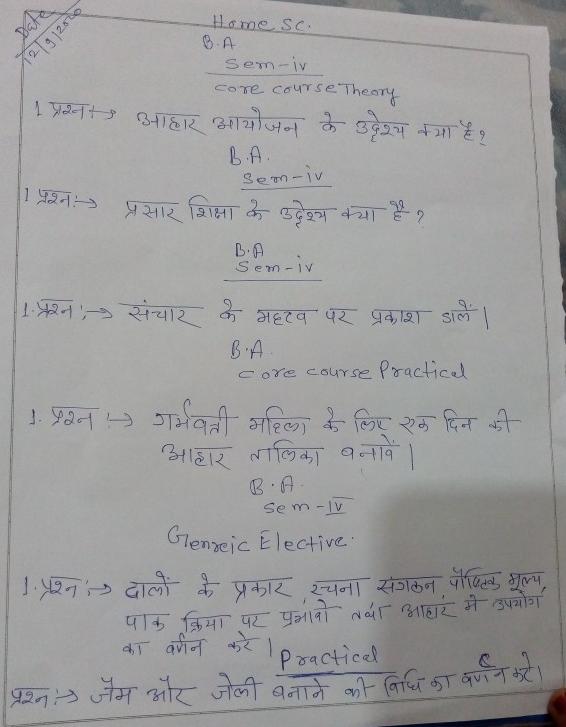 Date
12/9/2020
Home Sc.
B.A
Sem-iv
core course Theory
1 प्रश्न:-→ आहार आयोजन के उद्देश्य क्या है?
B.A.
Sem-iv
1 प्रश्न:-→ प्रसार शिक्षा के उद्देश्य क्या है?
B.A
Sem-iv
1. प्रश्न:-→ संचार के महत्व पर प्रकाश डालें।
B.A.
core course Practical
1. प्रश्न:-→ गर्भवती महिला के लिए एक दिन की
आहार तालिका बनावें।
B.A.
Sem-IV
Genreic Elective.
1. प्रश्न:-→ दालों के प्रकार, रचना संगठन, पौष्टिक मूल्य,
पाक क्रिया पर प्रभावों तथा आहार में उपयोग
का वर्णन करे।
Practical
प्रश्न:-→ जैम और जेली बनाने की विधि का वर्णन करे।